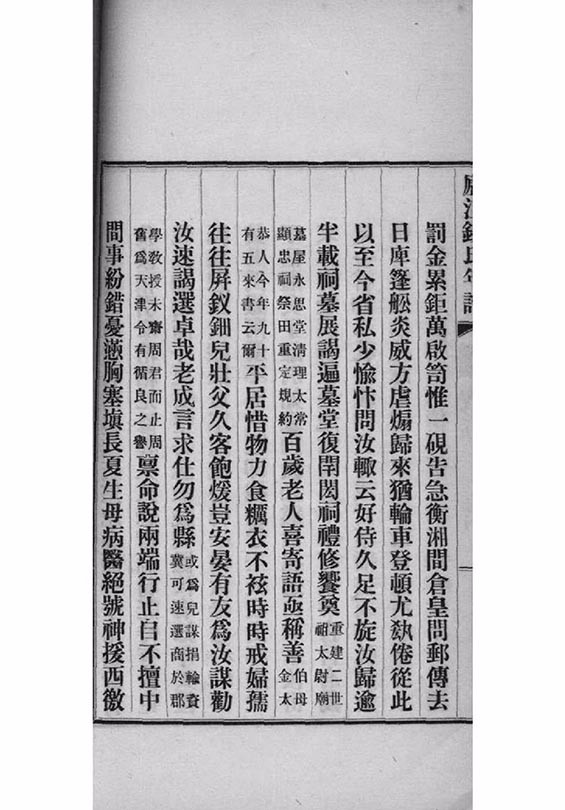 罰金累鉅萬啟笥惟一硯告急衡湘間倉皇問郵傳去
日庫篷舩炎威方虐煽歸來猶輪車登頓尤𡙇倦從此
以至今省私少愉忭問汝輙云好侍久足不旋汝歸逾
半載祠墓展謁遍墓堂復閈閎祠禮修饗奠重建二世祖太尉廟
墓屋永思堂清理太常顯忠祠祭田重定規約百歲老人喜寄語亟稱善伯母金太
恭人今年九十有五來書云爾平居惜物力食糲衣不袨時時戒婦孺
往往屏釵鈿兒壯父久客飽煖豈安晏有友爲汝謀勸
汝速謁選卓哉老成言求仕勿爲縣或爲兒謀捐輸資冀可速選商於郡
學敎授未齋周君而止周舊爲天津令有循良之譽稟命說兩端行止自不擅中
間事紛錯憂懣胸塞塡長夏生母病醫絕號神援西徼